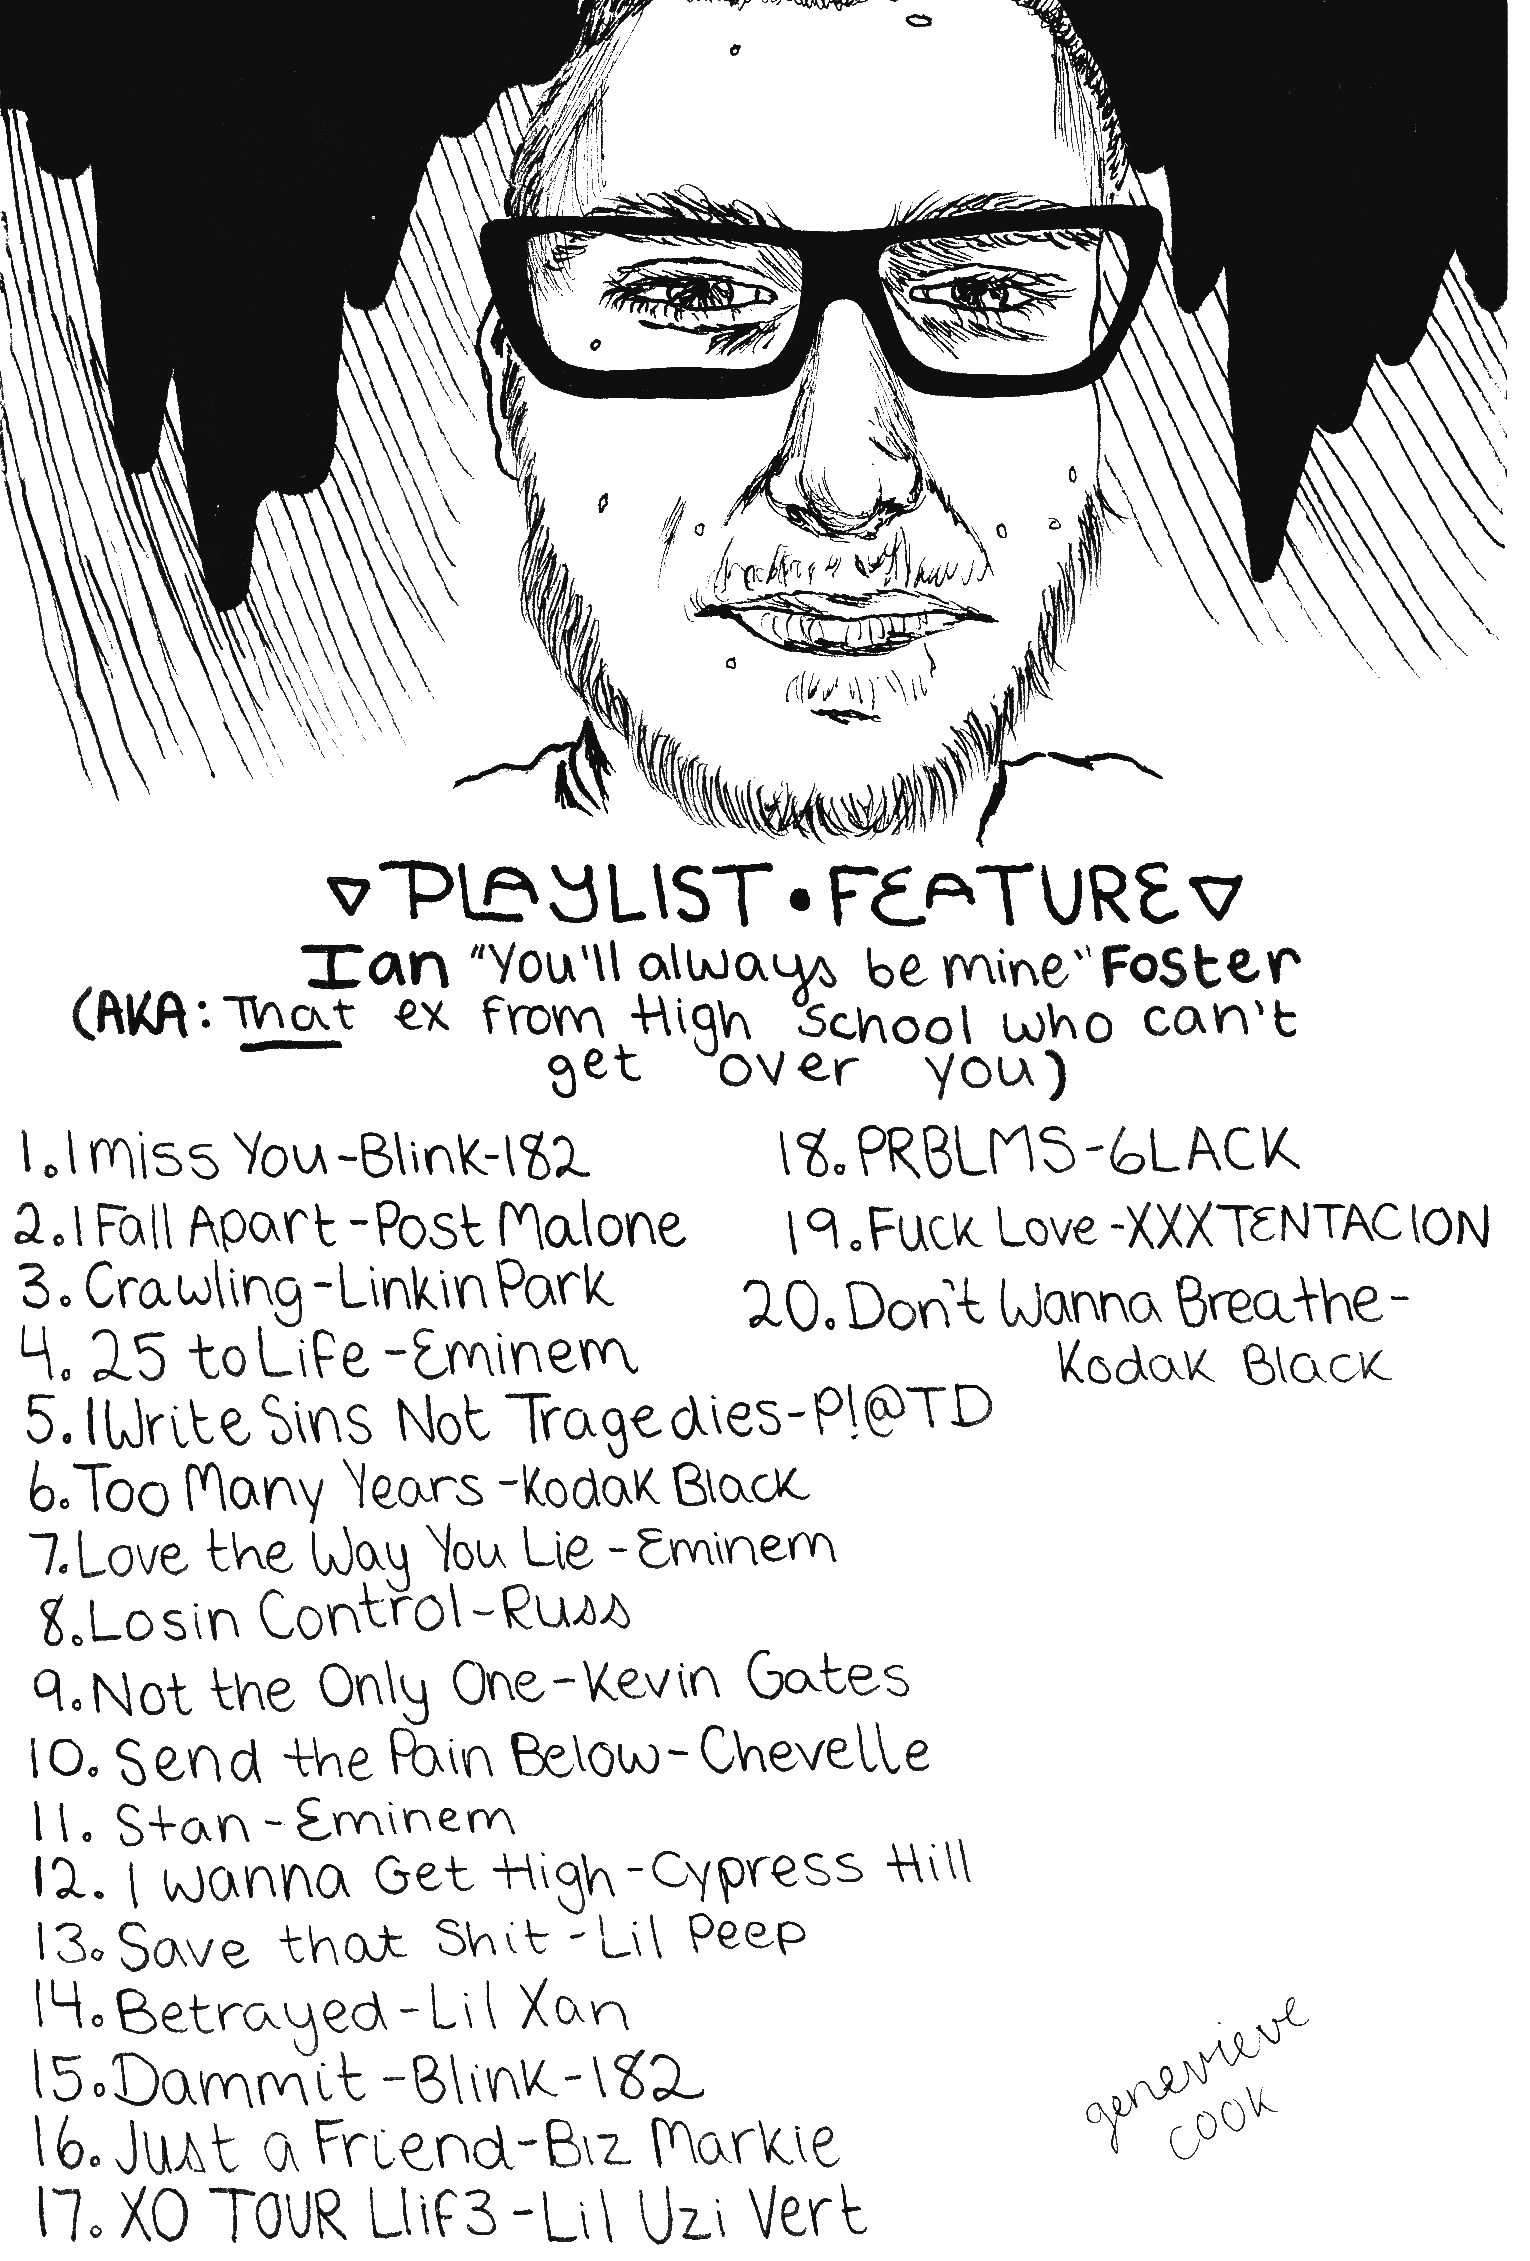 PLAYLIST • FEATURE
Ian "You'll always be mine" Foster
(AKA: That ex from High School who can't
get over you)
1. I miss You-Blink-182
2. I Fall Apart-Post Malone
3. Crawling-Linkin Park
4. 25 to Life-Eminem
5. I Write Sins Not Tragedies-P!@TD
6. Too Many Years-Kodak Black
7. Love the Way You Lie-Eminem
8. Losin Control-Russ
9. Not the Only One-Kevin Gates
10. Send the Pain Below-Chevelle
11. Stan-Eminem
12. I Wanna Get High-Cypress Hill
13. Save that Shit-Lil Peep
14. Betrayed-Lil Xan
15. Dammit-Blink-182
16. Just a Friend-Biz Markie
17. XO TOUR Llif3-Lil Uzi Vert
18. PRBLMS-6LACK
19. Fuck Love-XXXTENTACION
20. Don't Wanna Breathe-
Kodak Black
genevieve
cook